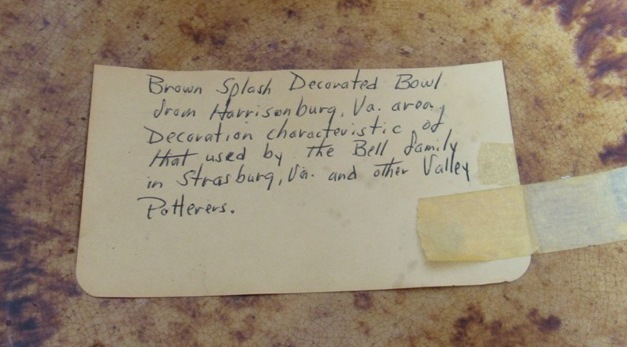 Brown Splash Decorated Bowl
from Harrisonburg, Va. area,
Decoration characteristic of
that used by the Bell family
in Strasburg, Va. and other Valley
Potterers.